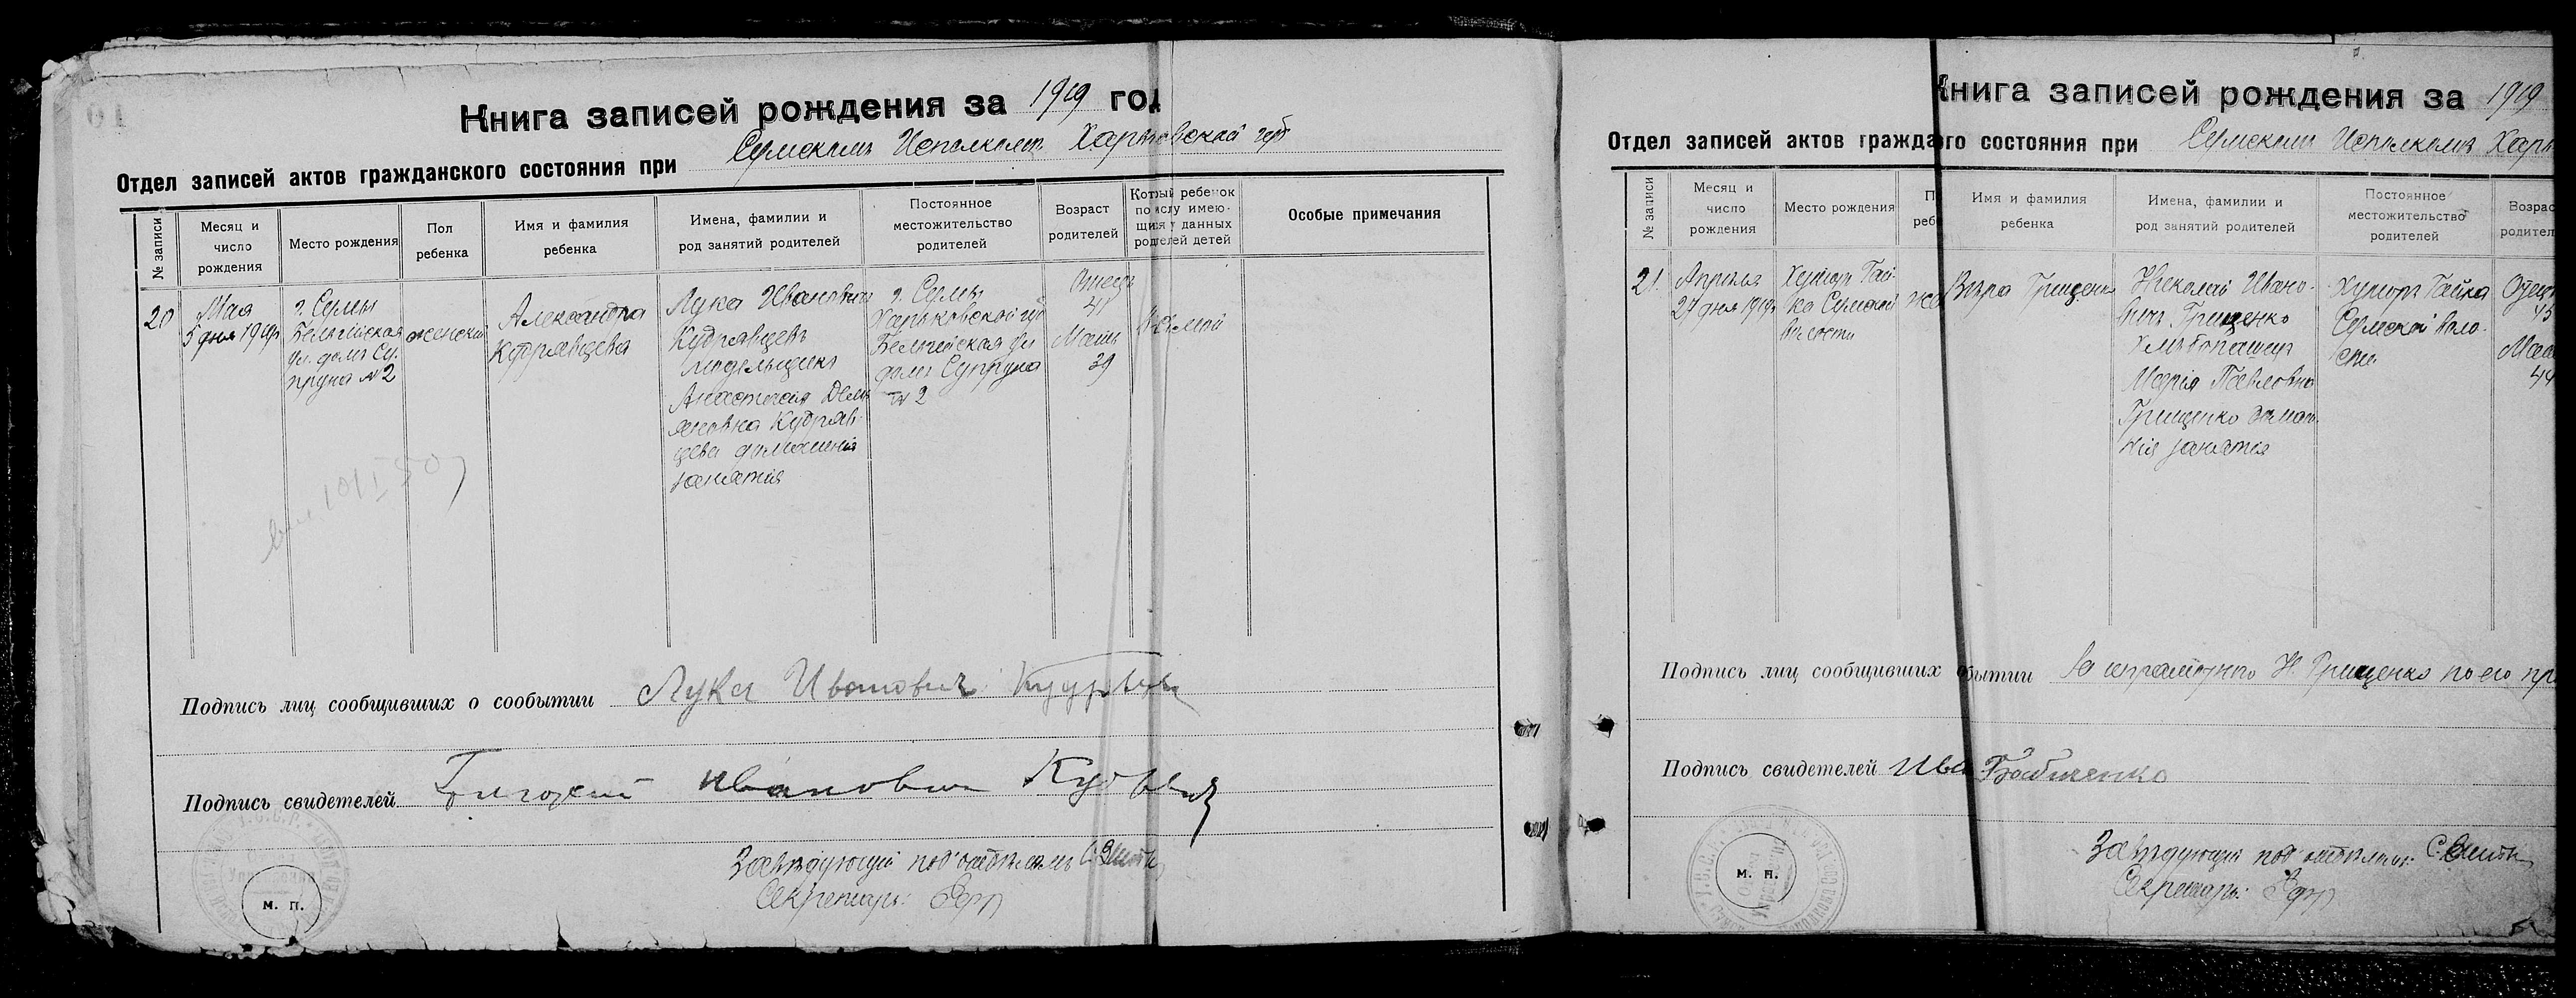 Книга записей рождения за 1919 год
Отдел записей актов гражданского состояния при Сумском Исполкоме Харьковской губ
№ записи
Месяц и
число
рождения
Место рождения
Пол
ребенка
Имя и фамилия
ребенка
Имена, фамилии и
род занятий родителей
Постоянное
местожительство
родителей
Возраст
родителей
Который ребенок
по числу имею-
щихся у данных
родителей детей
Особые примечания
20
Мая
5 дня 1919 г
г. Сумы
Бельгийская
ул. домъ Су-
пруна №2
женский
Александра
Кудрявцева
Лука Иванович
Кудрявцевъ
модельщикъ
Анастасия Демь
яновна Кудряв-
цева домашнія
занятія
г. Сумы
Харьковской гу
Бельгийская ул
домъ Супруна
№ 2
Отец
41
Мать
39
Подпись лиц сообщивших о сообытии Лука Иванович
Подпись свидетелей Григорий Иванович
Заведующій подотделомъ
Секретарь:
М. П.
Книга записей рождения за 1919
Отдел записей актов гражданского состояния при Сумском Исполкоме Харь
№ записи
Месяц и
число
рождения
Место рождения
П
реб
Имя и фамилия
ребенка
Имена, фамилии и
род занятий родителей
Постоянное
местожительство
родителей
Возрас
родител
21.
Апреля
27 дня 1919 г
Хуторъ Гай-
ка Сумской
волости
же
Вѣра Грищенко
Николай Ивано-
вичъ Грищенко
хлѣбопашец
Марія Павловна
Грищенко домаш-
нія занятія
Хуторъ Гайка
Сумской воло-
сти
Отец
45
Мать
44
Подпись лиц сообщивших бытии За неграмотного Н. Грищенко по его пр
Подпись свидетелей Ива Бабиченко
Заведующій подотделом:
Секретарь:
М. П.